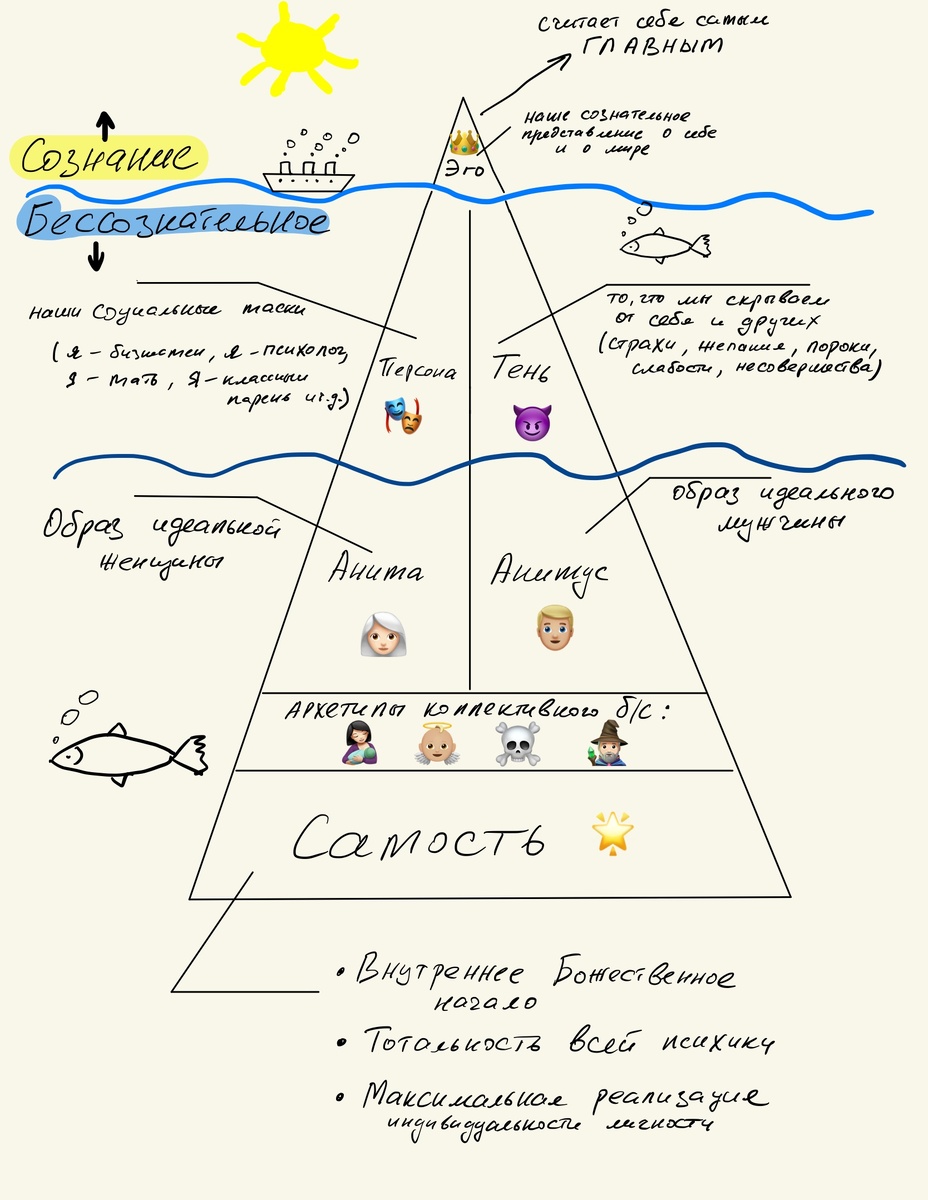 считает себе самым
ГЛАВНЫМ
наше сознательное
представление о себе
и о мире
Эго
Сознание
Бессознательное
наши социальные маски
(я – бизнесмен, я – психолог,
я – мать, я – классный
парень и т.д.)
то, что мы скрываем
от себя и других
(страхи, желания, пороки,
слабости, несовершества)
Персона
Тень
Образ идеальной
женщины
образ идеального
мужчины
Анима
Анимус
Архетипы коллективного б/с:
Самость
• Внутреннее Божественное
начало
• Тотальность всей психики
• Максимальная реализация
индивидуальности личности